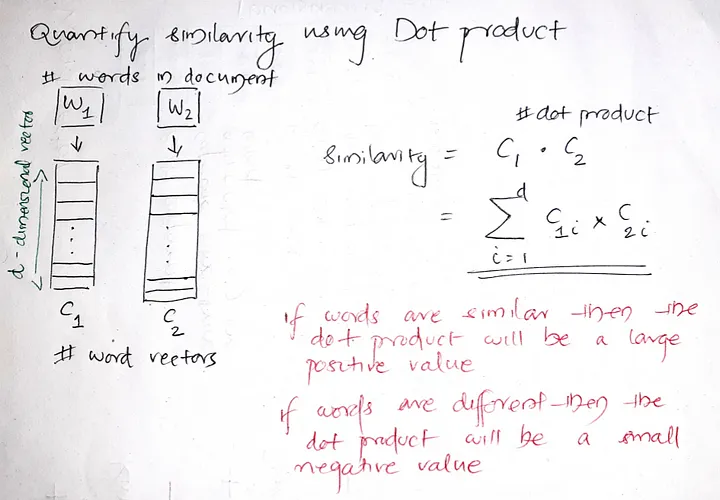 Quantify similarity using Dot product
# words in document
W1 W2
d-dimensional vector
C1 C2
# word vectors
# dot product
similarity = C1 · C2
= d∑i=1 C1i × C2i
if words are similar then the
dot product will be a large
positive value
if words are different then the
dot product will be a small
negative value